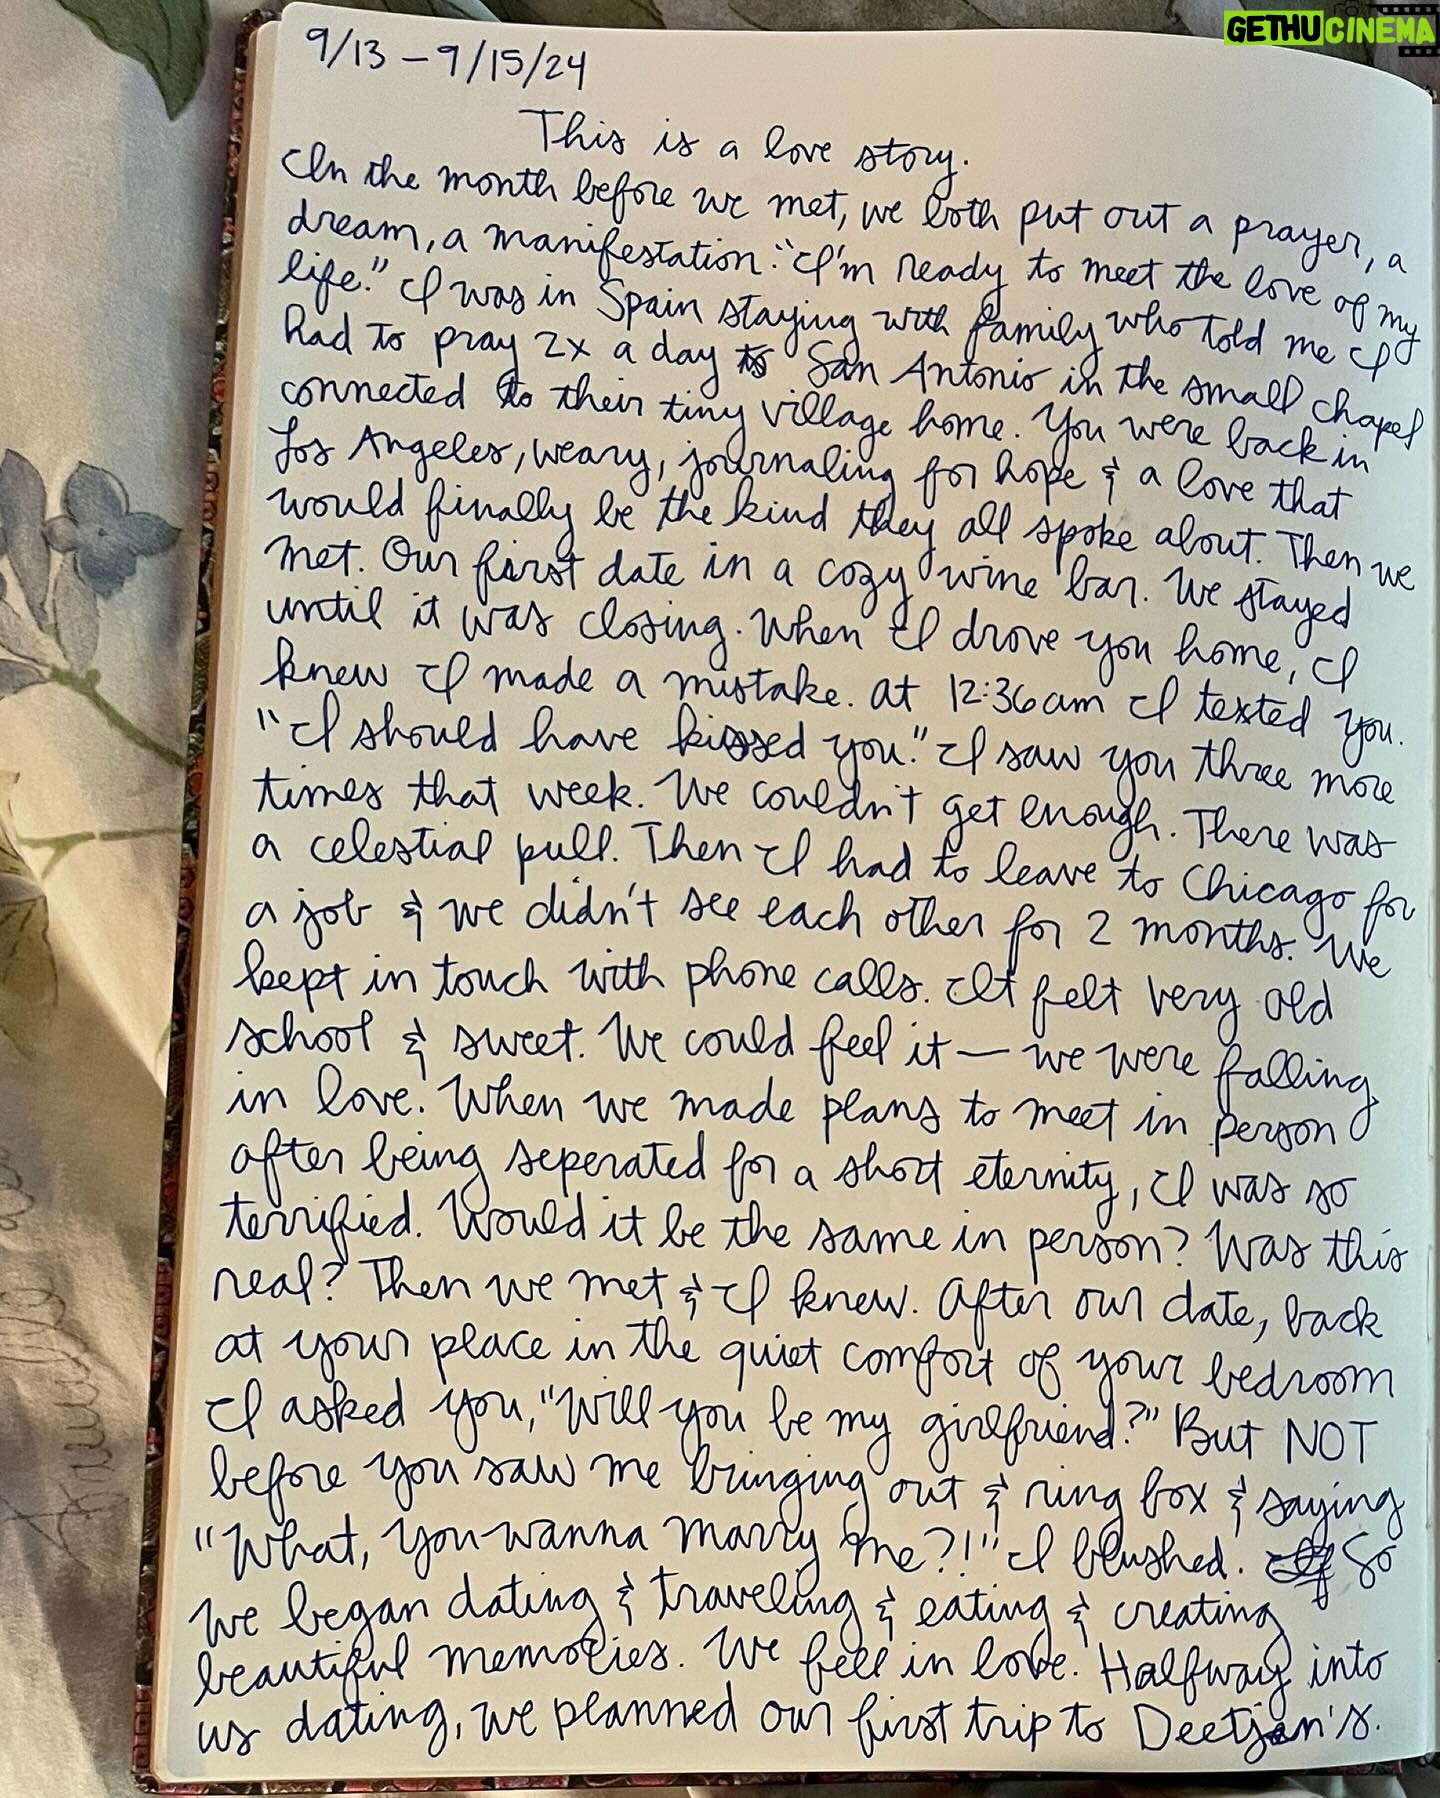 GETHUCINEMA
9/13 - 9/15/24
This is a love story.
In the month before we met, we both put out a prayer, a
dream, a manifestation: "I'm ready to meet the love of my
life." I was in Spain staying with family who told me I
had to pray 2x a day to San Antonio in the small chapel
connected to their tiny village home. You were back in
Los Angeles, weary, journaling for hope & a love that
would finally be the kind they all spoke about. Then we
met. Our first date in a cozy wine bar. We stayed
until it was closing. When I drove you home, I
knew I made a mistake. At 12:36am I texted you.
"I should have kissed you." I saw you three more
times that week. We couldn't get enough. There was
a celestial pull. Then I had to leave to Chicago for
a job & we didn't see each other for 2 months. We
kept in touch with phone calls. It felt very old
school & sweet. We could feel it — we were falling
in love. When we made plans to meet in person
after being seperated for a short eternity, I was so
terrified. Would it be the same in person? Was this
real? Then we met & I knew. After our date, back
at your place in the quiet comfort of your bedroom
I asked you, "Will you be my girlfriend?" But NOT
before you saw me bringing out & ring box & saying
"What, you wanna marry me?!" I blushed. So
we began dating & traveling & eating & creating
beautiful memories. We fell in love. Halfway into
us dating, we planned our first trip to Deetjen's.